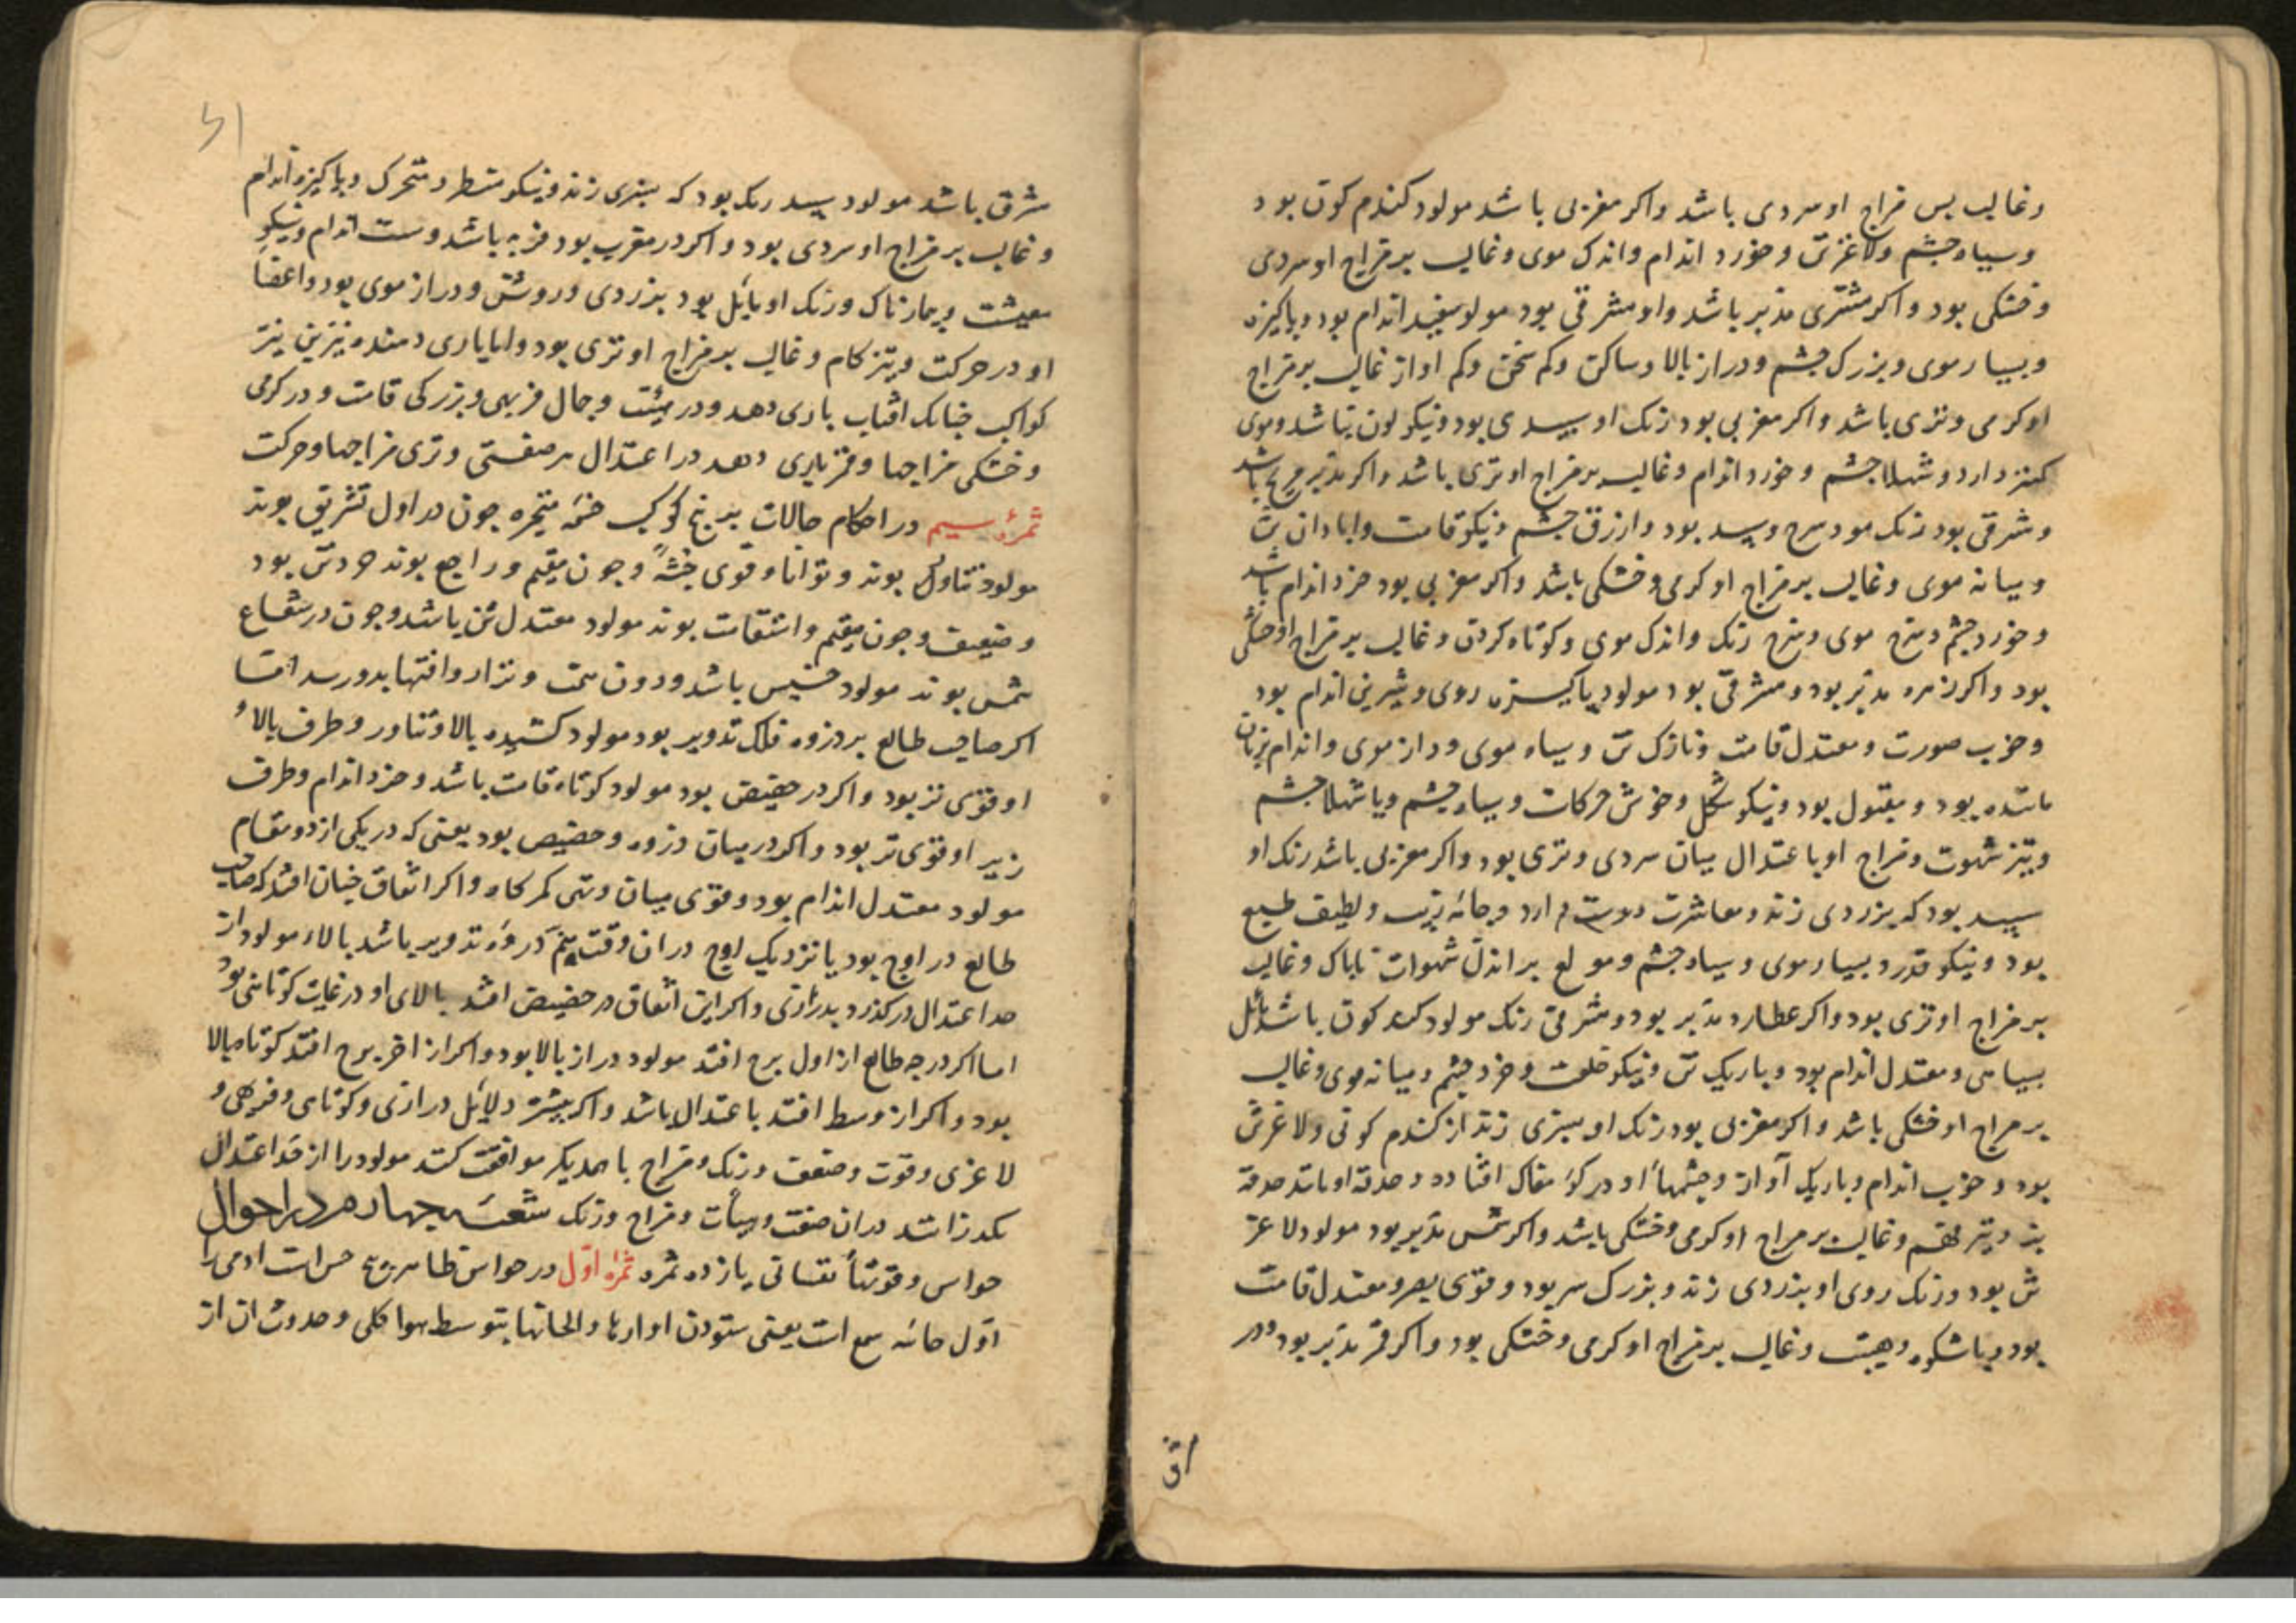 وغالب بس مزاج او سردی باشد واکر مغربی باشد مولود کندم کون بود
وسیاه چشم ولاغرتن وخورد اندام واندک موی وغالب بر مزاج او سردی
وخشکی بود واکر مشتری مدبر باشد واو مشرقی بود مولود سفید اندام بود وپاکیزه
وبسیار موی وبزرک چشم ودراز بالا وساکن وکم سخن وکم اواز غالب بر مزاج
او کرمی وتری باشد واکر مغربی بود رنک او سپیدی بود ونیکو لون نباشد وموی
کمتر دارد وشهلا چشم وخورد اندام وغالب بر مزاج او تری باشد واکر مدبر مریخ باشد
وشرقی بود رنک مولود سرخ وسپید بود وازرق چشم ونیکو قامت وابادان تن
ومیانه موی وغالب بر مزاج او کرمی وخشکی باشد واکر مغربی بود خرد اندام باشد
وخورد چشم وسرخ موی وسرخ رنک واندک موی وکوتاه کردن وغالب بر مزاج او خشکی
بود واکر زهره مدبر بود ومشرقی بود مولود پاکیزه روی وشیرین اندام بود
وخوب صورت ومعتدل قامت ونازک تن وسیاه موی ودراز موی واندام بزنان
مانده بود ومقبول بود ونیکو شکل وخوش حرکات وسیاه چشم ویا شهلا چشم
وتیز شهوت ومزاج او باعتدال میان سردی وتری بود واکر مغربی باشد رنک او
سپید بود که بزردی زند ومعاشرت دوست دارد وجامه زیب ولطیف طبع
بود ونیکو قد وبسیار موی وسیاه چشم ومولع بر اندک شهوات ناپاک وغالب
بر مزاج او تری بود واکر عطارد مدبر بود ومشرقی رنک مولود کندم کون باشد مائل
بسیاهی ومعتدل اندام بود وباریک تن ونیکو خلقت وخرد چشم ومیانه موی وغالب
بر مزاج او خشکی باشد واکر مغربی بود رنک او بسبزی زند از کندم کونی ولاغرتن
بود وخوب اندام وباریک آواز وچشمها او در کو مغاک افتاده وحدقه او مانند حدقه
بز وتیز فهم وغالب بر مزاج او کرمی وخشکی باشد واکر شمس مدبر بود مولود لاغر
تن بود ورنک روی او بزردی زند وبزرک سر بود وقوی بصر ومعتدل قامت
بود وباشکوه وهیبت وغالب بر مزاج او کرمی وخشکی بود واکر قمر مدبر بود ودر
شرق باشد مولود سپید رنک بود که بسبزی زند ونیکو منظر ومتحرک وپاکیزه اندام
وغالب بر مزاج او سردی بود واکر در مغرب بود فربه باشد وسست اندام ونیکو
معیشت وبیمارناک ورنک او مائل بود بزردی وروشن ودراز موی بود واعضا
او در حرکت وتیز کام وغالب بر مزاج او تری بود واما یاری دهنده نیرین نیز
کواکب چنانک افتاب یاری دهد در هیئت وجمال فربهی وبزرکی قامت ودر کرمی
وخشکی مزاجها وقمر یاری دهد در اعتدال هر صفتی وتری مزاجها وحرکت
ثمرهٔ سیم در احکام حالات پنج کوکب خمسه متحیره چون در اول تشریق بوند
مولود تناول بوند وتوانا وقوی جثه وچون مقیم وراجع بوند خردتن بود
وضعیف وچون مقیم واستقامت بوند مولود معتدل تن باشد وچون در شعاع
شمس بوند مولود خسیس باشد ودون همت ونزار وافتها بدو رسد امّا
اکر صاحب طالع بر ذروه فلک تدویر بود مولود کشیده بالا وتناور وطرف بالاء
او قوی تر بود واکر در حضیض بود مولود کوتاه قامت باشد وخرد اندام وطرف
زیر او قوی تر بود واکر در میان ذروه وحضیض بود یعنی که در یکی از دو مقام
مولود معتدل اندام بود وقوی میان وتهی کمرکاه واکر اتفاق چنان افتد که صاحب
طالع در اوج بود یا نزدیک اوج در ان وقت هم در ذروه تدویر باشد بالاء مولود از
حد اعتدال درکذرد بدرازی واکر این اتفاق در حضیض افتد بالای او در غایت کوتاهی بود
اما اکر درجه طالع از اول برج افتد مولود دراز بالا بود واکر از اخر برج افتد کوتاه بالا
بود واکر از وسط افتد باعتدال باشد واکر بیشتر دلایل درازی وکوتاهی وفربهی و
لاغری وقوت وضعف ورنک ومزاج با همدیکر موافقت کنند مولود را از حد اعتدال
بکذرانند در ان صفت وهیأت ومزاج ورنک شعبه چهارم در احوال
حواس وقوتها نفسانی یازده ثمره ثمرهٔ اوّل در حواس ظاهر پنج حس است ادمی را
اوّل حاسه سمع است یعنی ستودن اوازها والحانها بتوسط هوا کلی وحدوث ان از